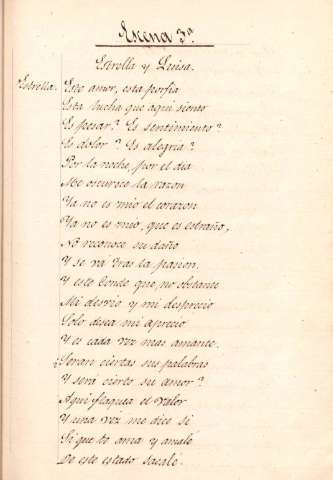 Escena 3ª
Estrella y Luisa.
Estrella. Este amor, esta porfia
Esta lucha que aqui siento
Es pesar? Es sentimiento?
Es dolor? Es alegria?
Por la noche, por el dia
Me oscurece la razon
Ya no es mio el corazon
Ya no es mio, que es estraño,
No reconoce su daño
Y se vá tras la pasion.
Y este Conde que no obstante
Mi desvio y mi desprecio
Solo desea mi aprecio
Y es cada vez mas amante.
¿Seran ciertas sus palabras
Y será cierto su amor?
Aqui flaquea el valor
Y una voz me dice si
Si que te ama y amalé
De este estado sacalé.